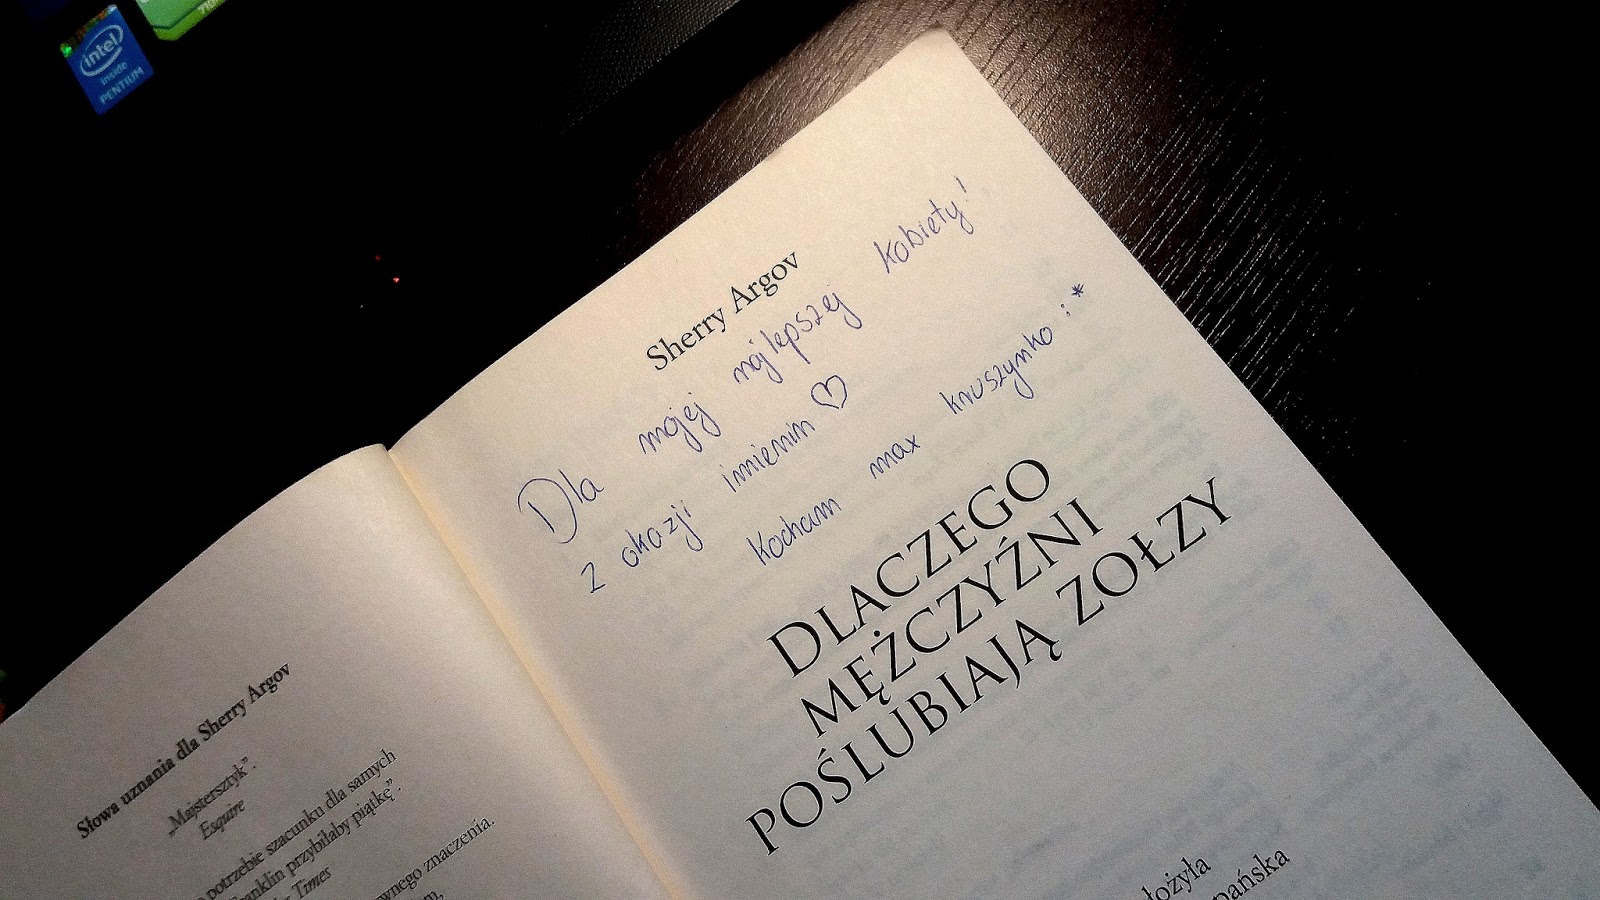 intel
inside
PENTIUM
Słowa uznania dla Sherry Argov
„Majstersztyk”.
Esquire
potrzebie szacunku dla samych
anklin przybiłaby piątkę”.
Times
ewnego znaczenia.
Sherry Argov
Dla mojej najlepszej kobiety!
z okazji imienin ♡
Kocham max kruszynko :*
DLACZEGO
MĘŻCZYŹNI
POŚLUBIAJĄ ZOŁZY
łożyła
pańska